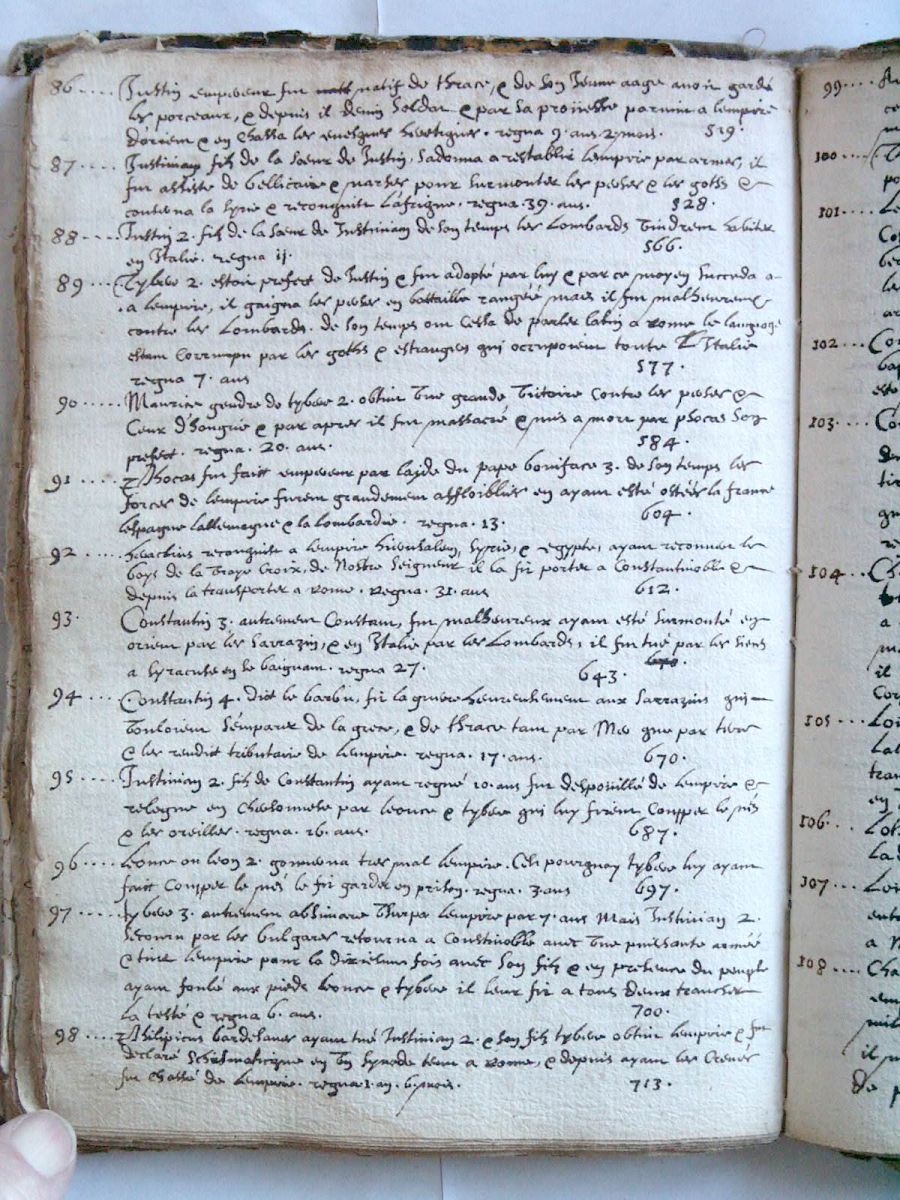 86.... Justin empereur fut natif de thrace, & de son Jeune aage avoit gardé
les porceaux, & depuis il devint soldat & par sa prouesse parvint a lempire
d'orient & en chassa les evesques heretiques. regna 9. ans. 2. mois. 519.
87.... Justinian filz de la soeur de Justin, sadonna a restablir lempire par armes, il
fut assisté de bellisaire & narses pour surmonter les perses & les goths &
la syrie & reconquist L'afrique. regna 39. ans. 528.
88.... Justin 2. filz de la soeur de Justinian de son temps les Lombards vindrent habiter
en Italie. regna 11. 566.
89.... Tybere 2. estoit prefect de Justin & fut adopté par luy & par ce moyen succeda a
a lempire, il gaigna les perses en battaille rangéé mais il fut malheureux
contre les Lombards. de son temps on cessa de parler latin a rome le language
estant corrumpu par les goths & estrangers qui occuperent toute L'Italie
regna 7. ans 577.
90.... Maurice gendre de tybere 2. obtint une grande victoire contre les perses &
Ceux d'hongrie & par apres il fut massacré & mis a mort par phocas son
prefect. regna. 20. ans. 584.
91.... Phocas fut faict empereur par layde du pape boniface 3. de son temps les
forces de lempire furent grandement affloiblies en ayant esté ostéés la france
lespagne lallemagne & la lombardie. regna. 13. 604.
92.... heraclius reconquist a lempire hierusalem, syrie, & egypte, ayant recouvert le
boys de la vraye Croix, de Nostre Seigneur il la fit porter a Constantinoble &
depuis la transporter a rome. regna. 31. ans 612.
93. Constantin 3. autrement Constant, fut malheureux ayant esté surmonté en
orient par les sarrazins, & en Italie par les Lombards, il fut tué par les siens
a syracuse en se baignant. regna 27. 643.
94.... Constantin 4. dict le barbu, fit la guerre heureusement aux sarrazins qui
vouloient semparer de la grece, & de thrace tant par Mer que par terre
& les rendict tributaire de lempire. regna. 17. ans. 670.
95.... Justinian 2. filz de Constantin ayant regné 10. ans fut despouillé de lempire &
relegué en Chersonnese par leonce & tybere qui luy firent Coupper le nés
& les oreilles. regna. 16. ans. 687.
96.... leonce ou leon 2. gouverna tres mal lempire. Cest pourquoy tybere luy ayant
faict Coupper le nés le fit garder en prison. regna. 3. ans 697.
97.... tybere 3. autrement absimare Usurpa lempire par 7. ans Mais Justinian 2.
secouru par les bulgares retourna a Constinoble avec une puissante armée
& tint lempire pour la dixiesme fois avec son filz & en presence du peuple
ayant foulé aux pieds leonce & tybere il leur fit a tous deux trancher
la testé & regna 6. ans. 700.
98.... Philipicus bardesanes ayant tué Justinian 2. & son filz tybere obtint lempire & fut
declaré Schismaticque en un synode tenu a rome, & depuis ayant les
fut chassé de lempire. regna 1. an. 6. mois. 713.
99....
100....
101....
102....
103....
104....
105....
106....
107....
108....